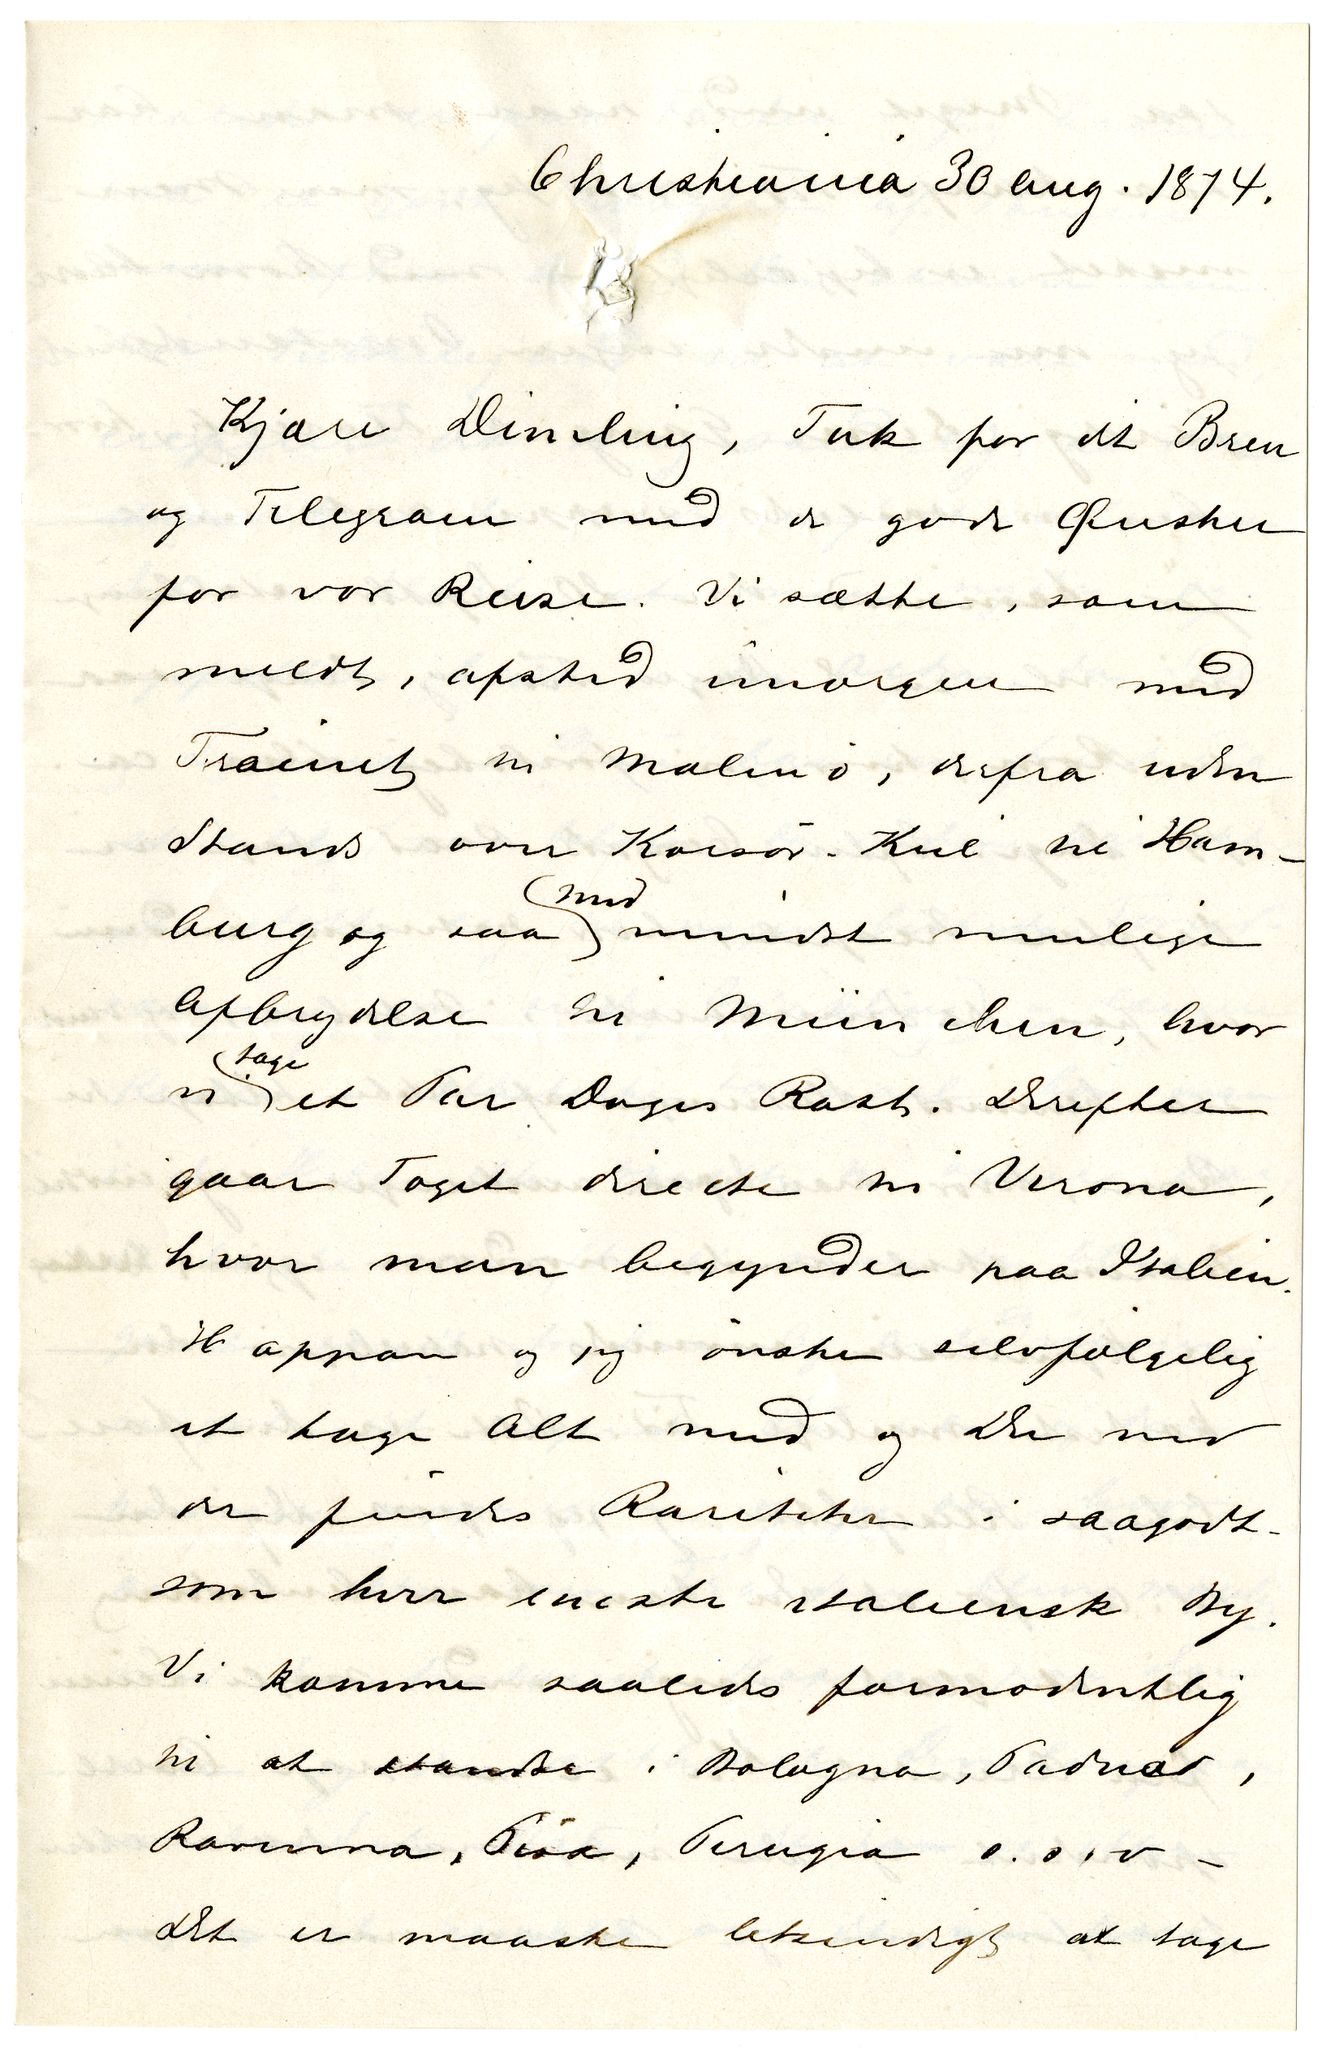 Christiania 30 aug. 1874.
Kjære Dietrichson, Tak for dit Brev
og Telegram med de gode Ønsker
for vor Reise. Vi sætte, som
meldt, afsted imorgen med
Trainet til Malmö, derfra uden
Stands over Korsör-Kiel til Ham-
burg og saa med mindst mulige
Afbrydelse til München, hvor
vi tage et Par Dages Rast. Derefter
gaar Toget directe til Verona,
hvor man begynder paa Italien.
Happan og jeg önske selvfølgelig
at tage Alt med og Du ved
der findes Rariteter i saagodt-
som hver eneste italiensk By.
Vi komme saaledes formodentlig
til at standse i Bologna, Padua,
Ravenna, Pisa, Perugia o.s.v –
Det er maaske letsindigt at tage